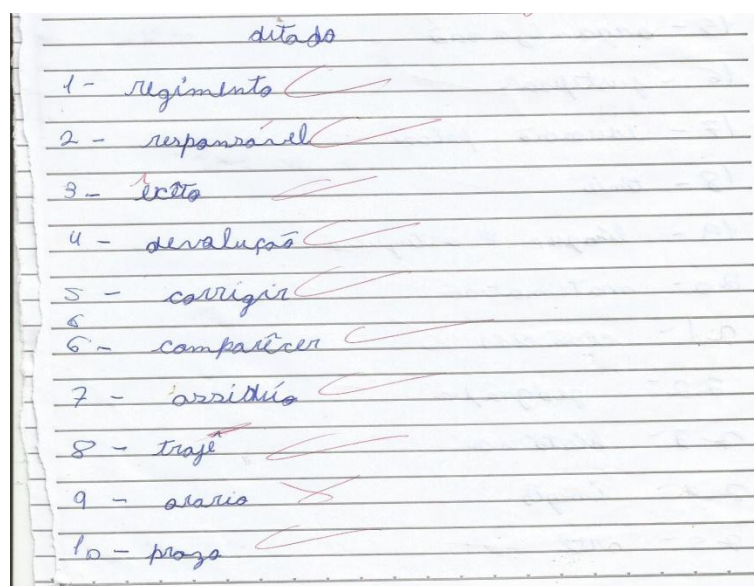 ditado
1 - regimento
2 - responsável
3 - êxito
4 - devalução
5 - corrigir
6
6 - comparêcer
7 - assidúo
8 - trajê
9 - orario
10 - prazo